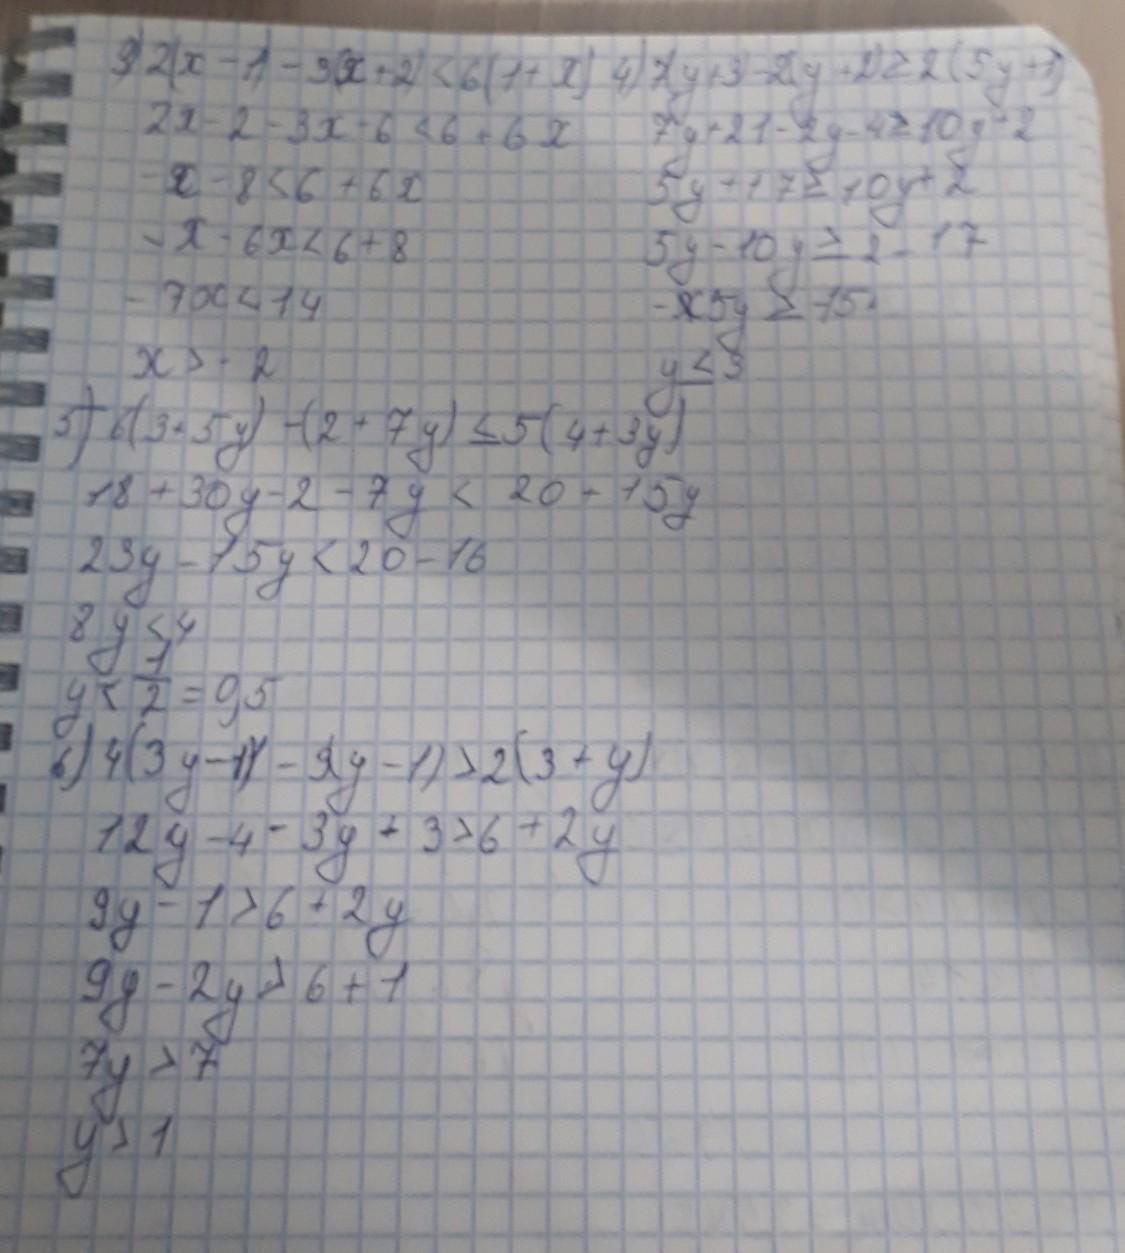 3) 2(x-1)-3(x+2)<6(1+x)
2x-2-3x-6<6+6x
-x-8<6+6x
-x-6x<6+8
-7x<14
x>-2
4) 7(y+3)-2(y+2)≥2(5y+1)
7y+21-2y-4≥10y+2
5y+17≥10y+2
5y-10y≥2-17
-5y≥-15
y≤3
5) 6(3+5y)-(2+7y)≤5(4+3y)
18+30y-2-7y<20+15y
23y-15y<20-16
8y<4
y<1/2=0,5
6) 4(3y-1)-3(y-1)>2(3+y)
12y-4-3y+3>6+2y
9y-1>6+2y
9y-2y>6+1
7y>7
y>1